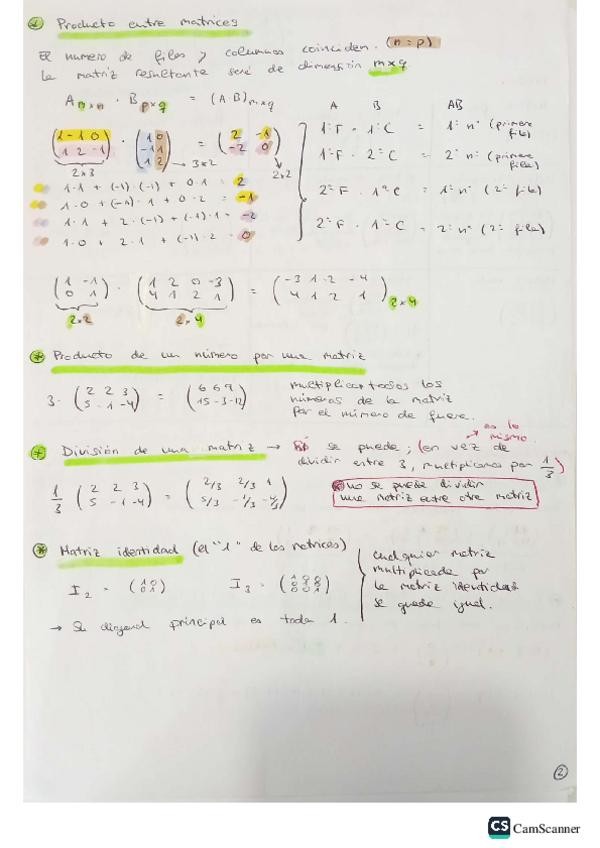 Producto entre matrices
El numero de filas y columnas coinciden. (n = p)
La matriz resultante será de dimensión m×q
A m×n · B p×q = (A·B) m×q
A B AB
(1 -1 0 / 1 2 -1) · (1 0 / -1 1 / 1 2) = (2 -1 / -2 0)
2×3 → 3×2 2×2
1ª F · 1ª C = 1º nº (primera fila)
1ª F · 2ª C = 2º nº (primera fila)
2ª F · 1ª C = 1º nº (2ª fila)
2ª F · 1ª C = 2º nº (2ª fila)
1·1 + (-1)·(-1) + 0·1 = 2
1·0 + (-1)·1 + 0·2 = -1
1·1 + 2·(-1) + (-1)·1 = -2
1·0 + 2·1 + (-1)·2 = 0
(1 -1 / 0 1) · (1 2 0 -3 / 4 1 2 1) = (-3 1 -2 -4 / 4 1 2 1) 2×4
2×2 2×4
Producto de un número por una matriz
3· (2 2 3 / 5 -1 -4) = (6 6 9 / 15 -3 -12)
multiplicar todos los
números de la matriz
por el número de fuera.
División de una matriz → se puede; (en vez de
es lo
mismo
dividir entre 3, multiplicamos por 1/3)
1/3 (2 2 3 / 5 -1 -4) = (2/3 2/3 1 / 5/3 -1/3 -4/3)
no se puede dividir
una matriz entre otra matriz
Matriz identidad (el "1" de las matrices)
I2 = (1 0 / 0 1) I3 = (1 0 0 / 0 1 0 / 0 0 1)
cualquier matriz
multiplicada por
la matriz identidad
se queda igual.
→ Su diagonal principal es todo 1.
2
CS CamScanner